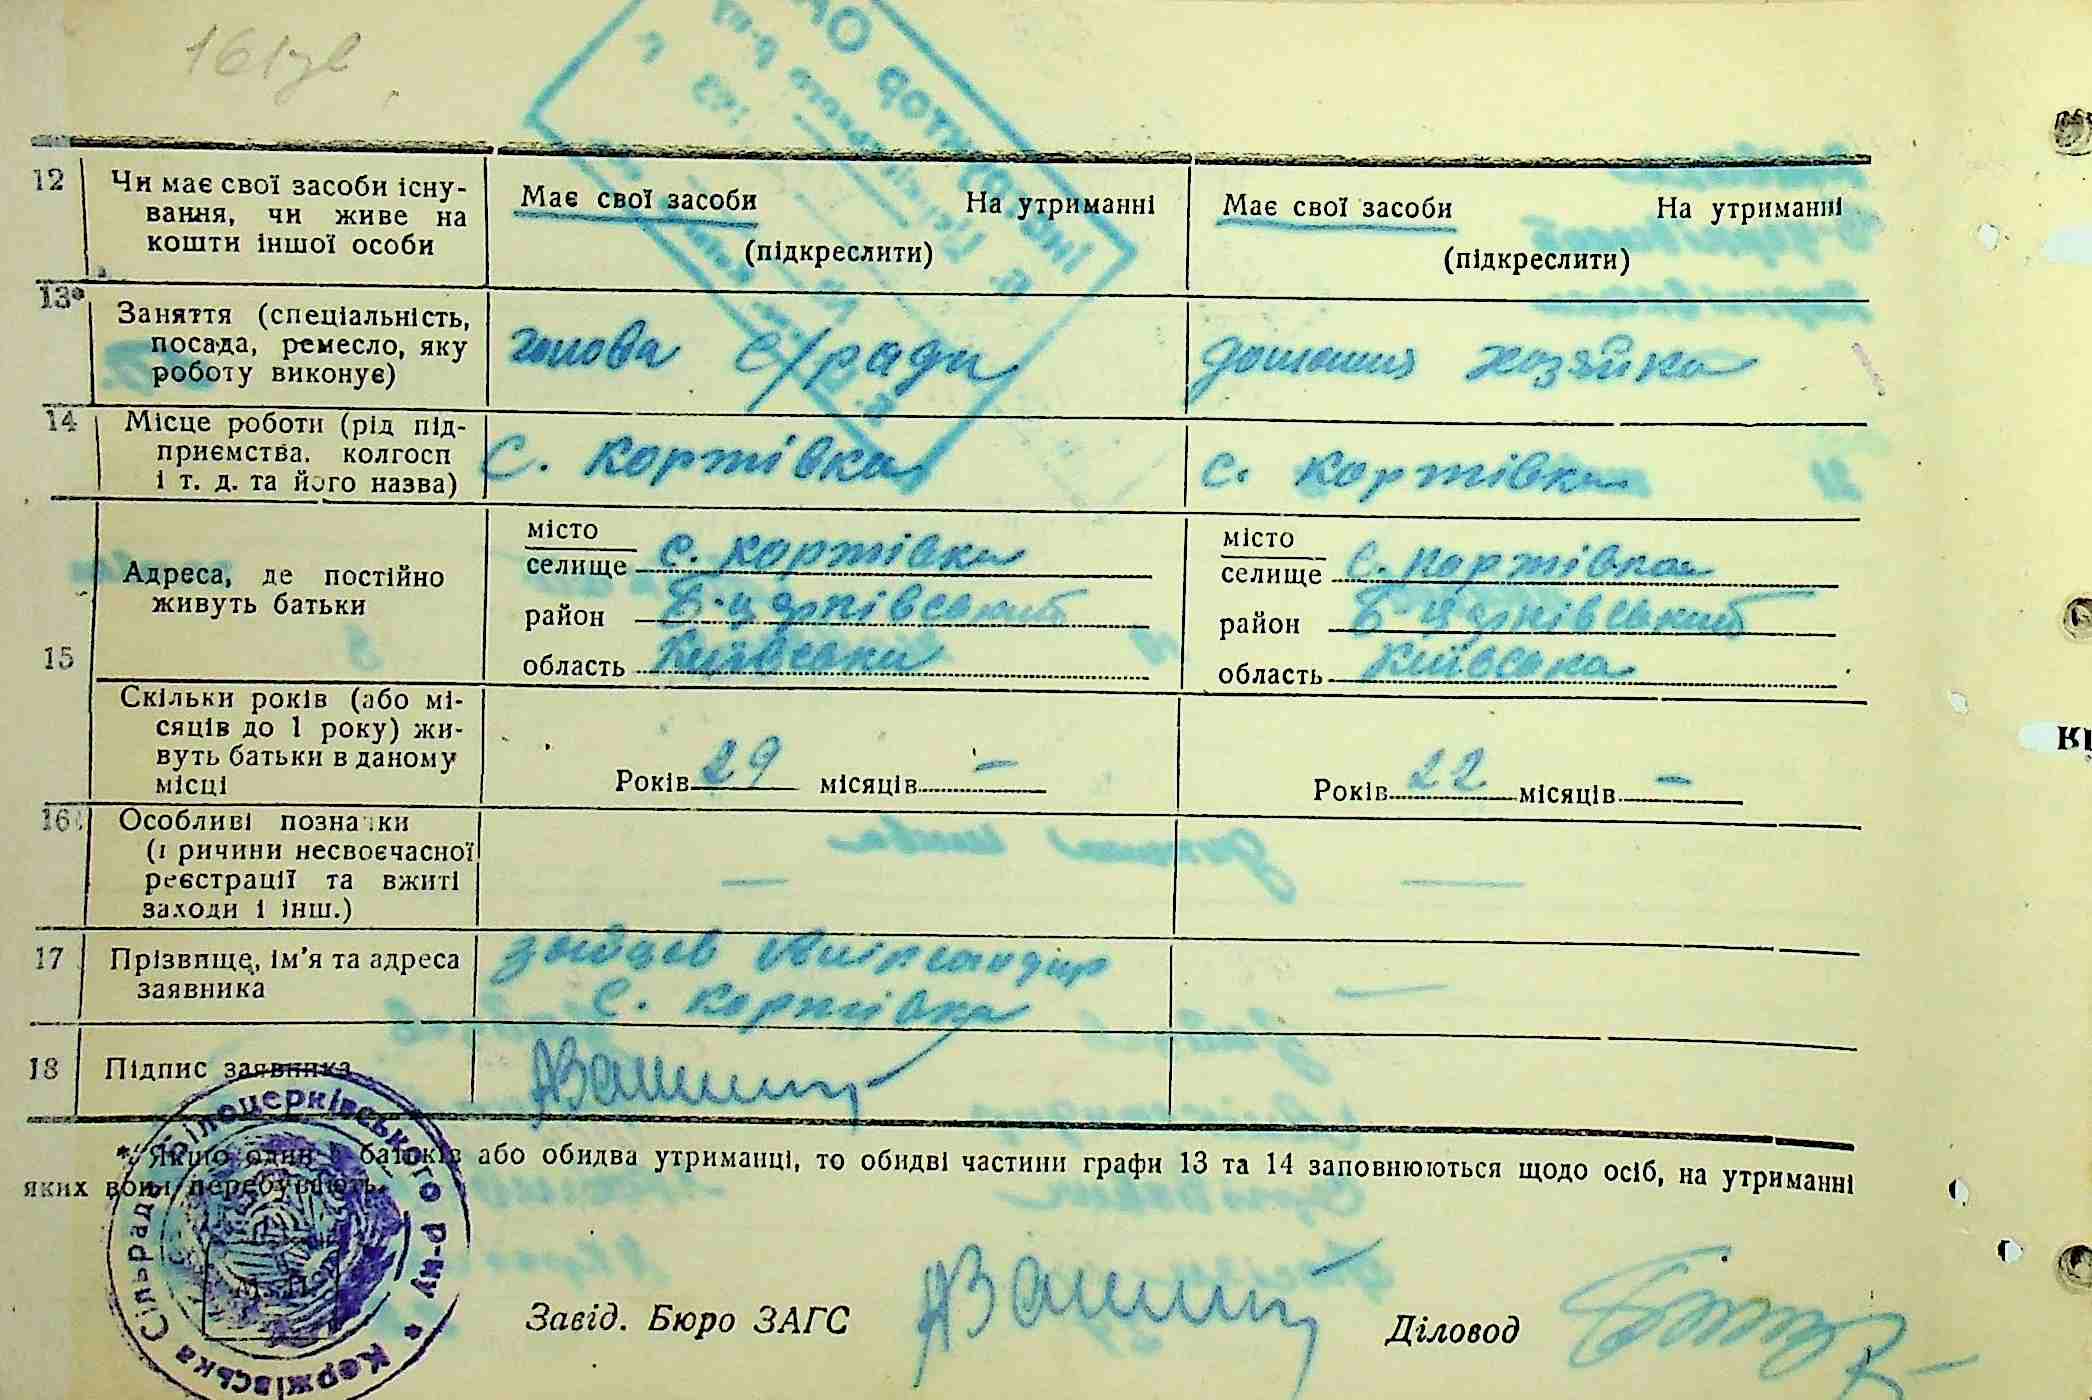 12 Чи має свої засоби існу-
вання, чи живе на
кошти іншої особи
Має свої засоби На утриманні
(підкреслити)
Має свої засоби На утриманні
(підкреслити)
13* Заняття (спеціальність,
посада, ремесло, яку
роботу виконує)
голова с/ради
домашня хозяйка
14 Місце роботи (рід під-
приємства. колгосп
і т. д. та його назва)
с. Коржівка
с. Коржівка
15
Адреса, де постійно
живуть батьки
місто
селище с. Коржівка
район Б-церківський
область Київська
місто
селище с. Коржівка
район Б церківський
область Київська
Скільки років (або мі-
сяців до 1 року) жи-
вуть батьки в даному
місці
Років 29 місяців —
Років 22 місяців —
16 Особливі позначки
(причини несвоєчасної
реєстрації та вжиті
заходи і інш.)
— —
17 Прізвище, ім'я та адреса
заявника
Олександр
с. Коржівка
—
18 Підпис заявника
* Якщо один з батьків або обидва утриманці, то обидві частини графи 13 та 14 заповнюються щодо осіб, на утриманні
яких вони перебувають.
Завід. Бюро ЗАГС
Діловод
М. П.
Сільрада Білоцерківського р-ну * Коржівська *